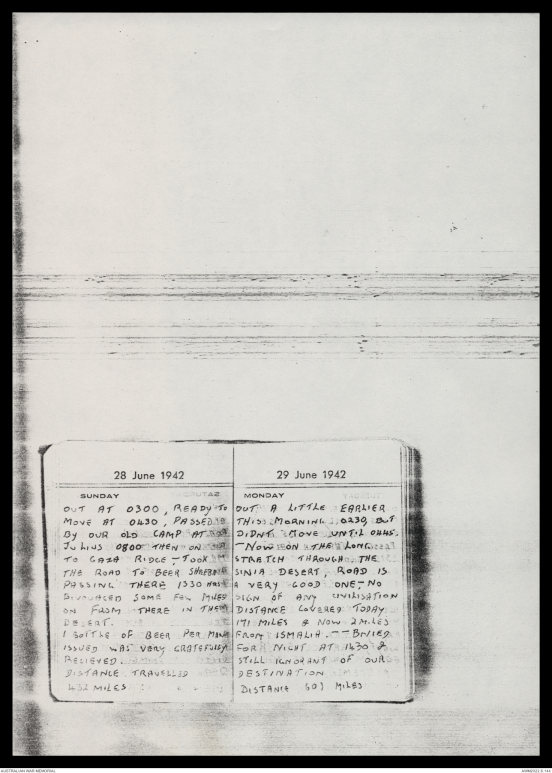 28 June 1942
SUNDAY
OUT AT 0300, READY TO
MOVE AT 0430, PASSED
BY OUR OLD CAMP AT
JULIUS 0800 THEN ON
TO GAZA RIDGE – TOOK
THE ROAD TO BEER SHEEBA
PASSING THERE 1330 HRS
BIVOUACED SOME FEW MILES
ON FROM THERE IN THE
DESERT.
1 BOTTLE OF BEER PER MAN
ISSUED WAS VERY GRATEFULLY
RECIEVED.
DISTANCE TRAVELLED
432 MILES
29 June 1942
MONDAY
OUT A LITTLE EARLIER
THIS MORNING, 0230, BUT
DIDN'T MOVE UNTIL 0445.
– NOW ON THE LONG
STRETCH THROUGH THE
SINIA DESERT, ROAD IS
A VERY GOOD ONE – NO
SIGN OF ANY CIVILISATION
DISTANCE COVERED TODAY
171 MILES & NOW 2 MILES
FROM ISMALIA. ––
FOR NIGHT AT 1430 &
STILL IGNORANT OF OUR
DESTINATION
DISTANCE 603 MILES
AUSTRALIAN WAR MEMORIAL